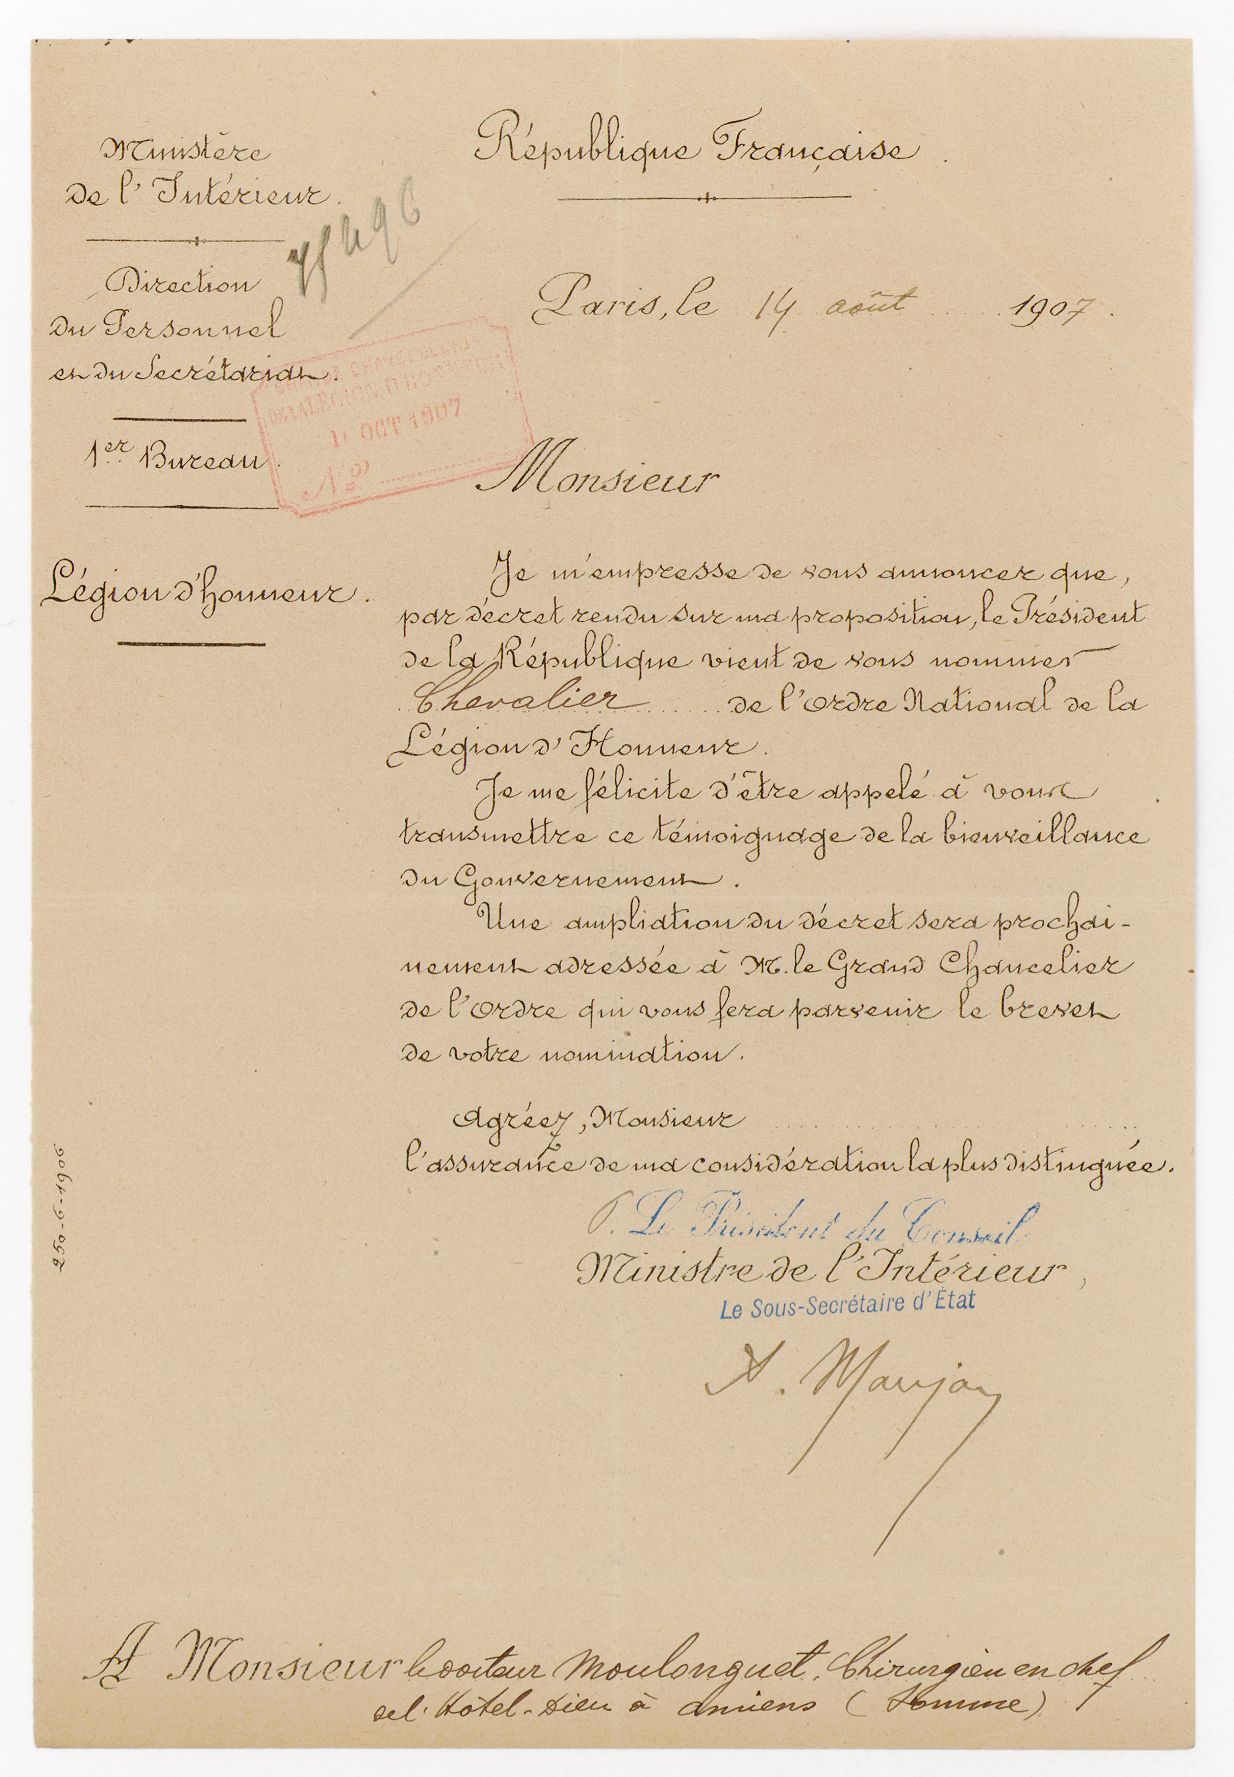 Ministère
de l'Intérieur.
Direction
du Personnel
et du Secrétariat.
1er Bureau.
Légion d'honneur.
République Française.
75496
Paris, le 14 août 1907.
GRANDE CHANCELLERIE
DE LA LÉGION D'HONNEUR
OCT 1907
N°
Monsieur
Je m'empresse de vous annoncer que,
par décret rendu sur ma proposition, le Président
de la République vient de vous nommer
Chevalier de l'Ordre National de la
Légion d'Honneur.
Je me félicite d'être appelé à vous
transmettre ce témoignage de la bienveillance
du Gouvernement.
Une ampliation du décret sera prochai-
nement adressée à M. le Grand Chancelier
de l'Ordre qui vous fera parvenir le brevet
de votre nomination.
Agréez, Monsieur
l'assurance de ma considération la plus distinguée.
P. Le Président du Conseil
Ministre de l'Intérieur,
Le Sous-Secrétaire d'État
A. Maujan
250-6-1906
A Monsieur le docteur Moulonguet, Chirurgien en chef
de l'Hôtel-Dieu à Amiens (Somme)